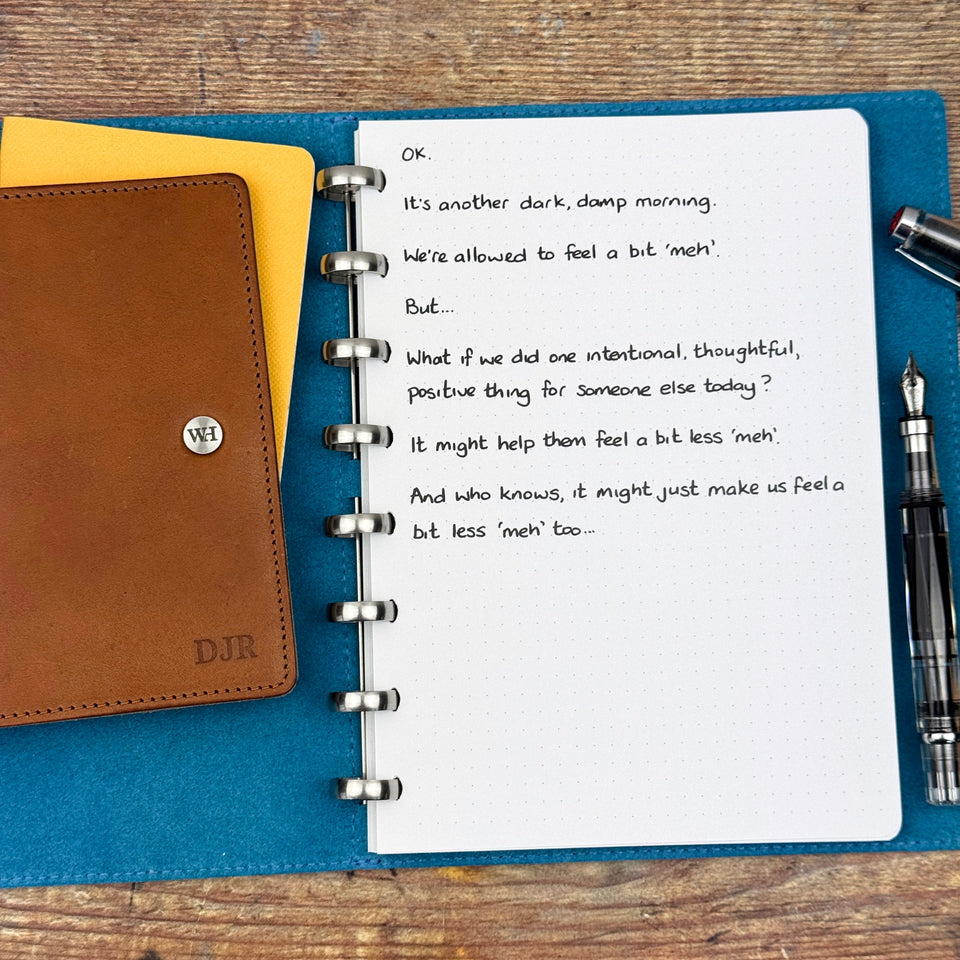 OK.
It's another dark, damp morning.
We're allowed to feel a bit 'meh'.
But...
What if we did one intentional, thoughtful,
positive thing for someone else today?
It might help them feel a bit less 'meh'.
And who knows, it might just make us feel a
bit less 'meh' too...
WH
DJR